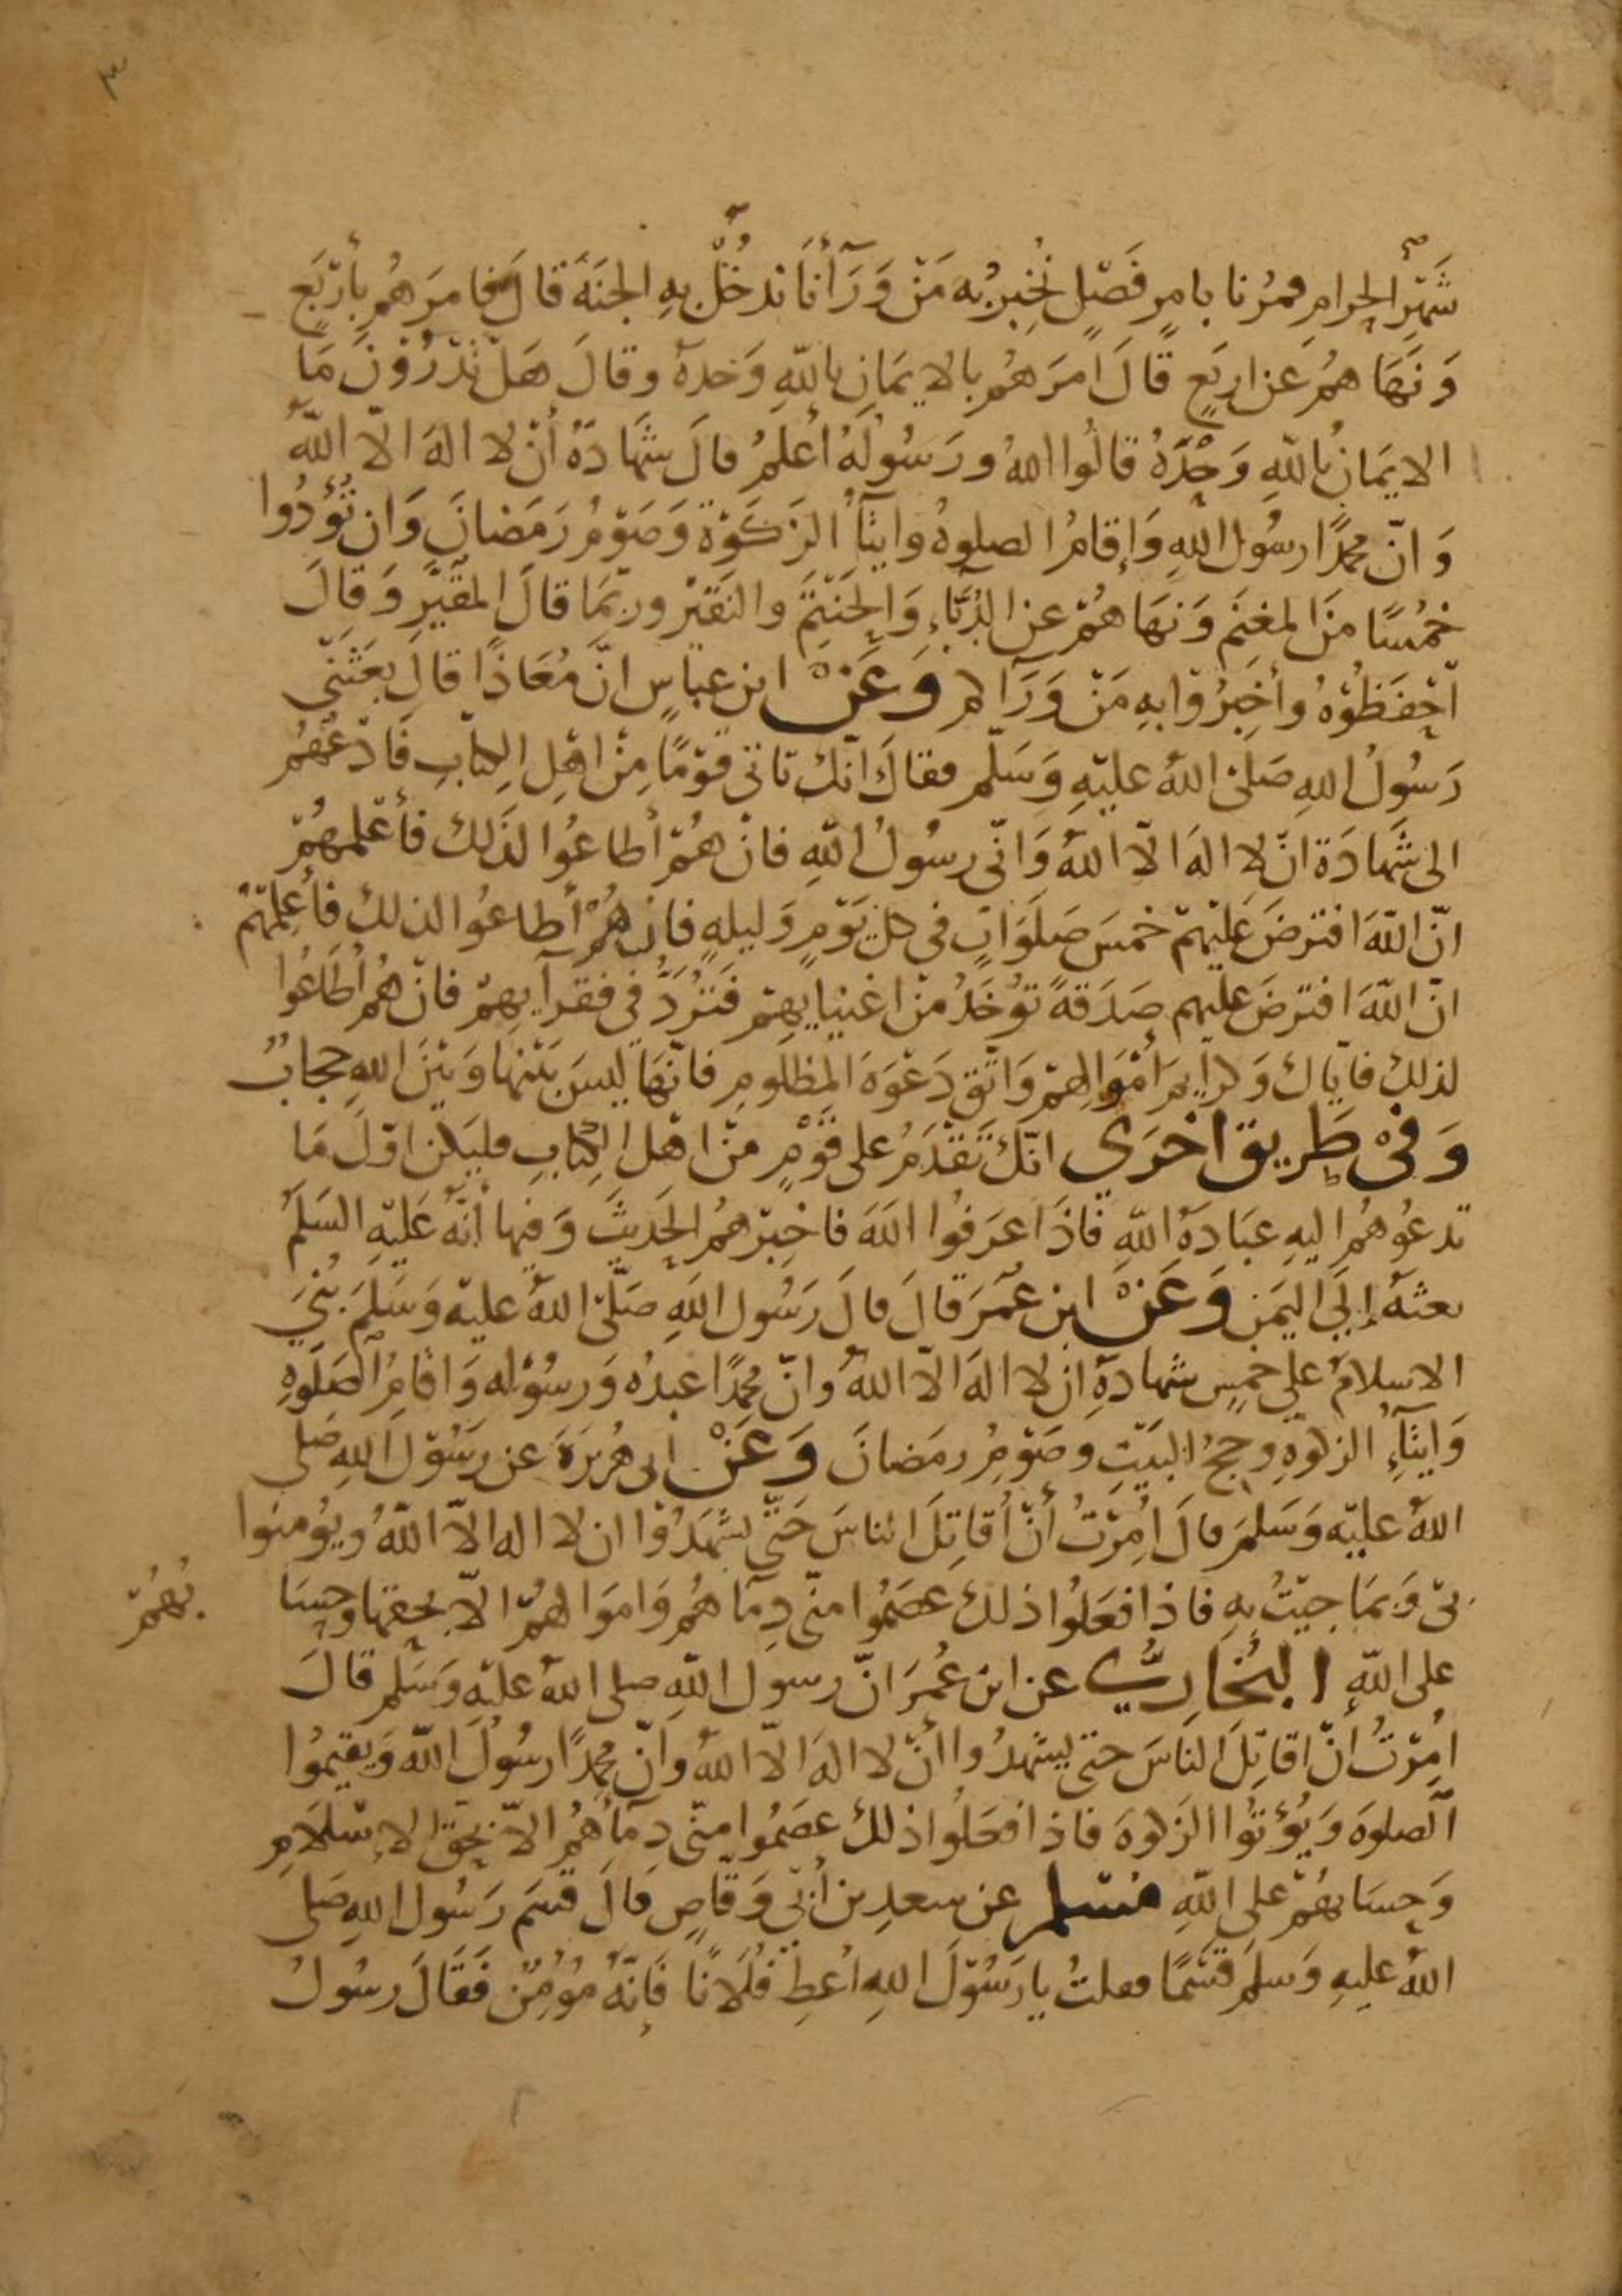 ٣
شَهْرِ الحرامِ فمُرنا بامرٍ فَصْلٍ نُخبِرُ به مَنْ وَرَآأنَا ندخُلُ بهِ الجنَةَ قالَ فامرَهُم بأربَع
وَنَهَاهمُ عن اربَعٍ قالَ امرَهُم بالايمَانِ باللّهِ وَحدهُ وقالَ هَل تَدْرُوْنَ مَا
الايمَانُ باللّهِ وَحْدَهُ قالُوا اللهُ ورَسُولُهُ أعلمُ قالَ شهَادَةُ أنْ لا الهَ الّا اللّهُ
وَانّ محمدًا رسُول اللهِ وَإِقامُ الصلوةُ وايتآأُ الزَكَوْةَ وَصَوْمُ رَمَضانَ وَان تُؤدُوا
خُمسًا منَ المغنَم وَنهَاهُمْ عن الدُبَّاءِ وَالحَنْتَمَ والنَقَيْر وربّمَا قالَ المقَيَّرِ وَقالَ
احْفَظُوْهُ وأخبِرُوْا بهِ مَنْ وَرَآكم وَعَنْ ابن عباسٍ انَّ مُعَاذًا قالَ بعَثَنّى
رَسُولُ اللهِ صَلىّ اللهُ عليْهِ وَسَلّم فقالَ انّك تاتى قوْمًا مِنْ اهْلِ الكتابِ فَادْعُهُم
الى شَهادَة انْ لا الهَ الّا اللهُ وَانّى رسُولُ اللّهِ فانْ هُمْ أطاعُوا لذَلك فأعْلمهُمْ
انّ اللّهَ افترضَ عَلَيْهِمْ خمسَ صَلَوَاتٍ فى كل يَوْمٍ وَليلهٍ فان هُمْ أطاعُوا لذلك فأعلِمْهُمْ
انّ اللّهَ افترضَ عليهم صَدَقةً تؤخَذُ منْ اغنيايهِمْ فَتُرَدُّ فى فقرآيهِمْ فانْ هُم أطَاعُوا
لذلكَ فايّاك وَكرايمَ امْوَالِهمْ وَاتّقِ دَعْوَة المظلُومِ فانّهَا ليسَ بَيْنهَا وَبَيْنَ اللهِ حجابٌ
وَفىْ طَرِيق اخرَي انّك تَقْدَمُ على قَوْمٍ منْ اهْل الكِتابِ فليَكن اوّلَ مَا
تدعُوهُم اليهِ عبَادَةُ اللّهِ فاذَا عرَفُوا اللّهَ فاخبِرْهُم الحَديثَ وَفيها أنّهُ عَليْهِ السَلَمُ
بعثهُ إلى اليمَنِ وَعَنْ ابن عُمَرَ قالَ قالَ رَسُول اللّهِ صَلّىْ اللهُ عليْه وَسَلمَ بُنىَ
الاسلامُ على خمسٍ شهادَةِ ان لا الهَ الّا اللهُ وانّ محمدًا عبدُه وَرسُوله وَاقامِ الصَلَوةِ
وَايتآءِ الزكوةِ وحجُ البيْتِ وصَوْمِ رمَضانَ وَعَنْ ابى هُرَيرَةَ عن رسَوْل اللهِ صَلى
اللهُ عليْه وَسَلمَ قالَ اُمِرْتُ أنْ أقاتِلَ الناسَ حَتّى يشهَدُوْا ان لا اله الّا اللهُ ويؤمنوا
بىّ وَبمَا جِئتُ بهِ فاذا فعَلُوا ذلكَ عصَمُوا منّى دِمَآهُم وَاموَالهمْ الّا بحقها وحسَا
بُهُمْ
على اللهِ البُخَارِيُّ عن ابن عُمَرَ انّ رسول اللهِ صلى اللهُ عليْهِ وَسَلم قالَ
اُمِرْتُ أنْ اقاتِلَ الناسَ حتى يشهدُوا أنْ لا الهَ الّا اللهُ وانّ محمدًا رسُولَ اللهِ وَيقيمُوا
الصلوةَ وَيُؤتُوا الزكوةَ فاذا فعَلُوا ذلكَ عصَمُوا منّى دِمَآءهُم الّا بحقِ الإسْلَامِ
وَحِسَابهُمْ على اللّهِ مُسْلم عن سعدِ بن أبىْ وَقّاصٍ قالَ قسَم رَسُول اللهِ صَلى
اللهُ عليهِ وَسلمَ قَسْمًا فقلتُ يا رَسُوْلَ اللهِ اعْطِ فُلَانًا فَإنّهُ مُؤمِنٌ فَقَالَ رسُولُ